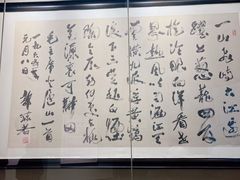 一山飞峙大江边
跃上葱茏四百
旋冷眼向洋看世
界热风吹雨洒
江天云横九派浮黄鹤
浪下三吴起白烟
陶令不知何处去桃
花源里可耕田
毛主席登庐山一首
元月八日